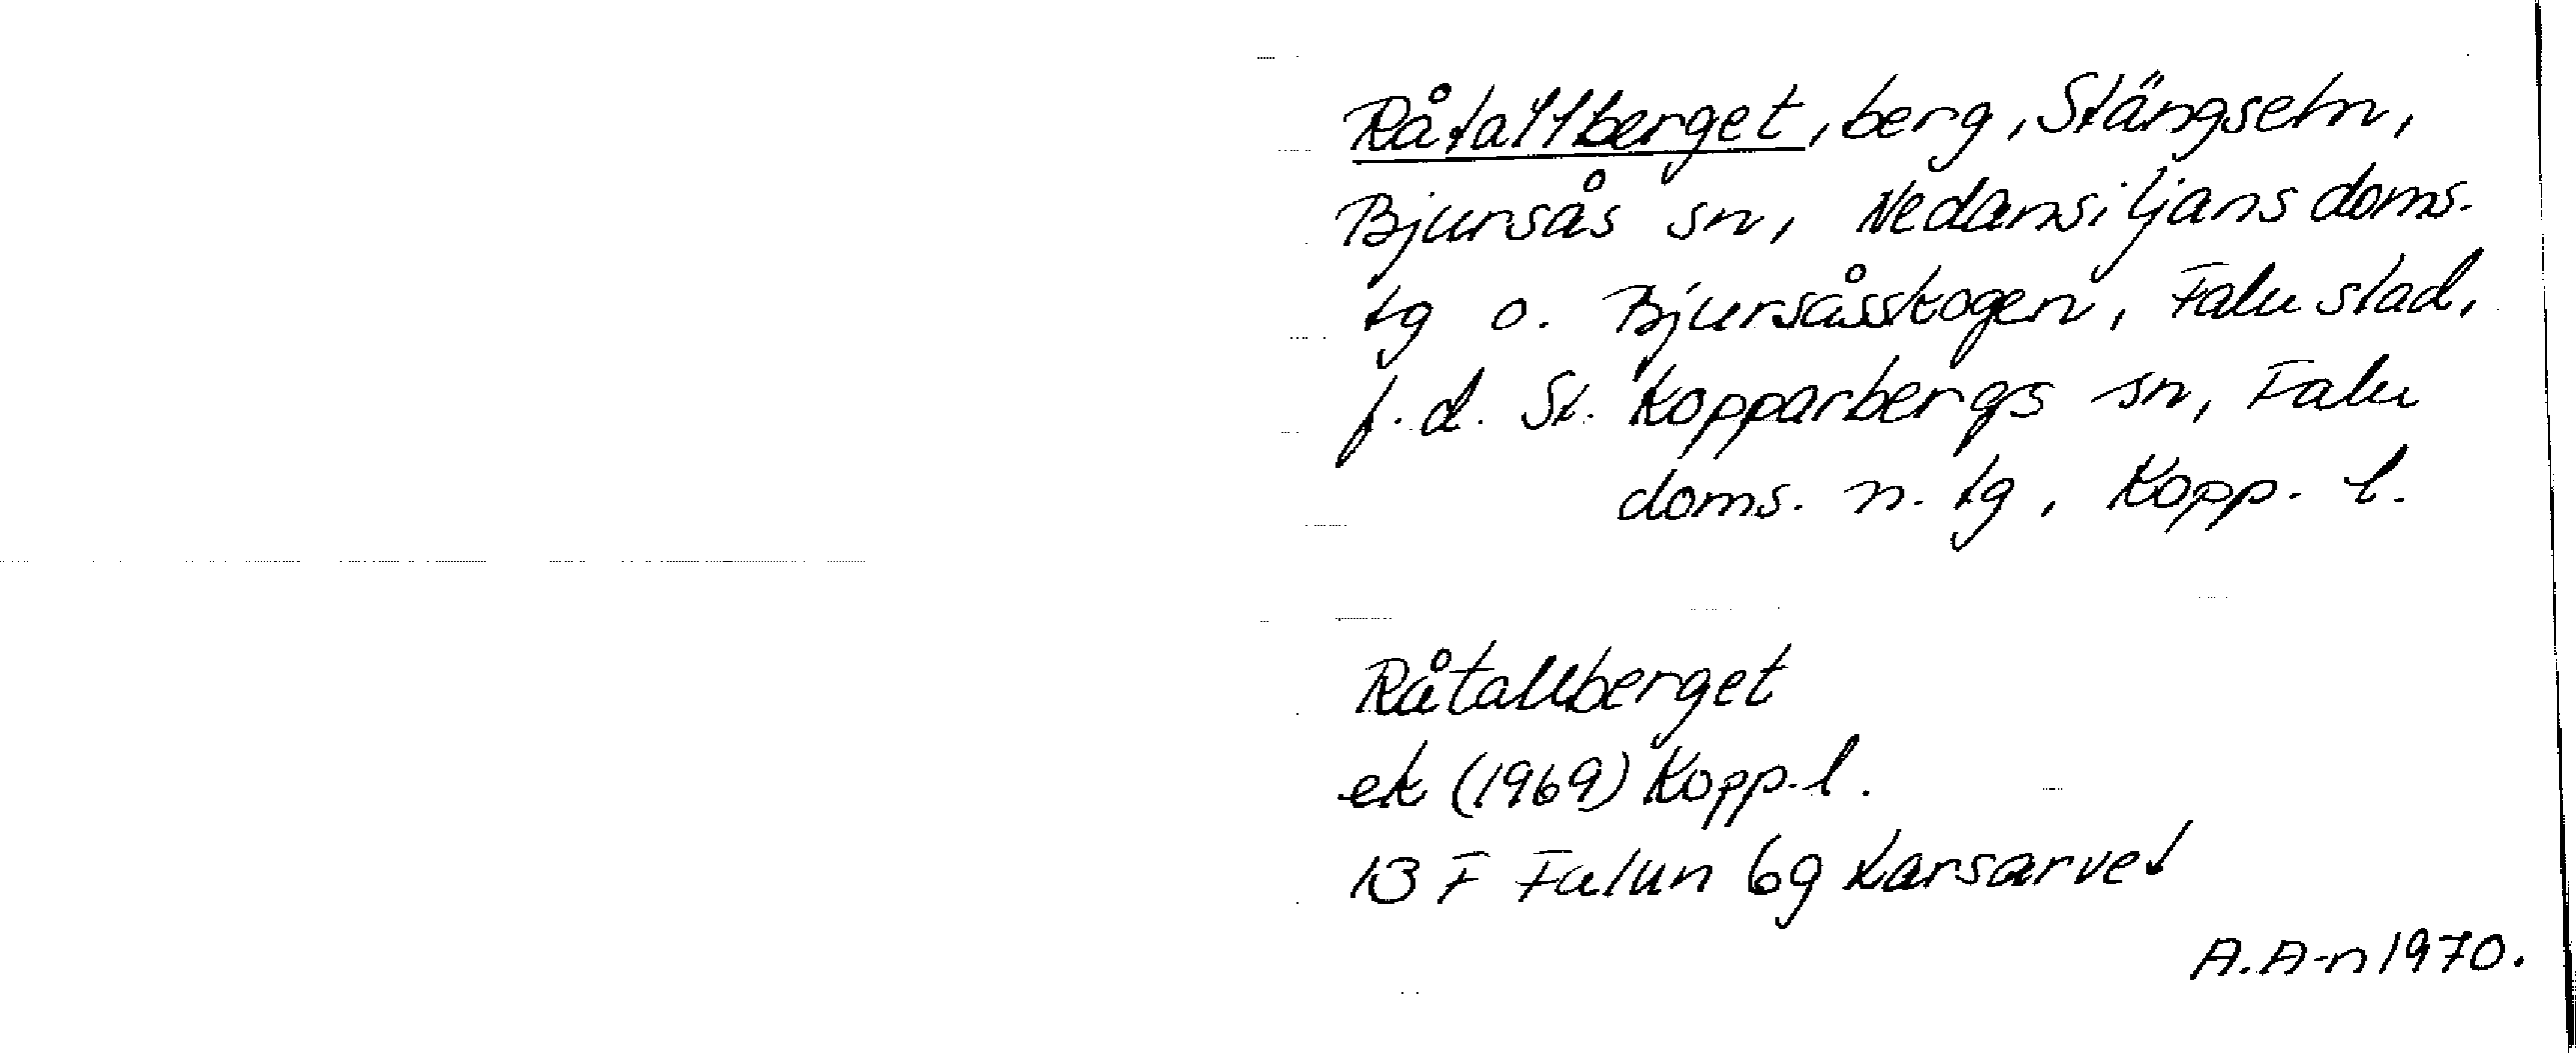 Råtallberget, berg, Stängseln,
Bjursås sn, Nedansiljans doms.
tg o. Bjursåsskogen, Falu stad,
f.d. St. Kopparbergs sn, Falu
doms. n. tg, Kopp. l.
Råtallberget
ek (1969) Kopp. l.
13 F Falun 6g Karsarvet
A.A-n 1970.